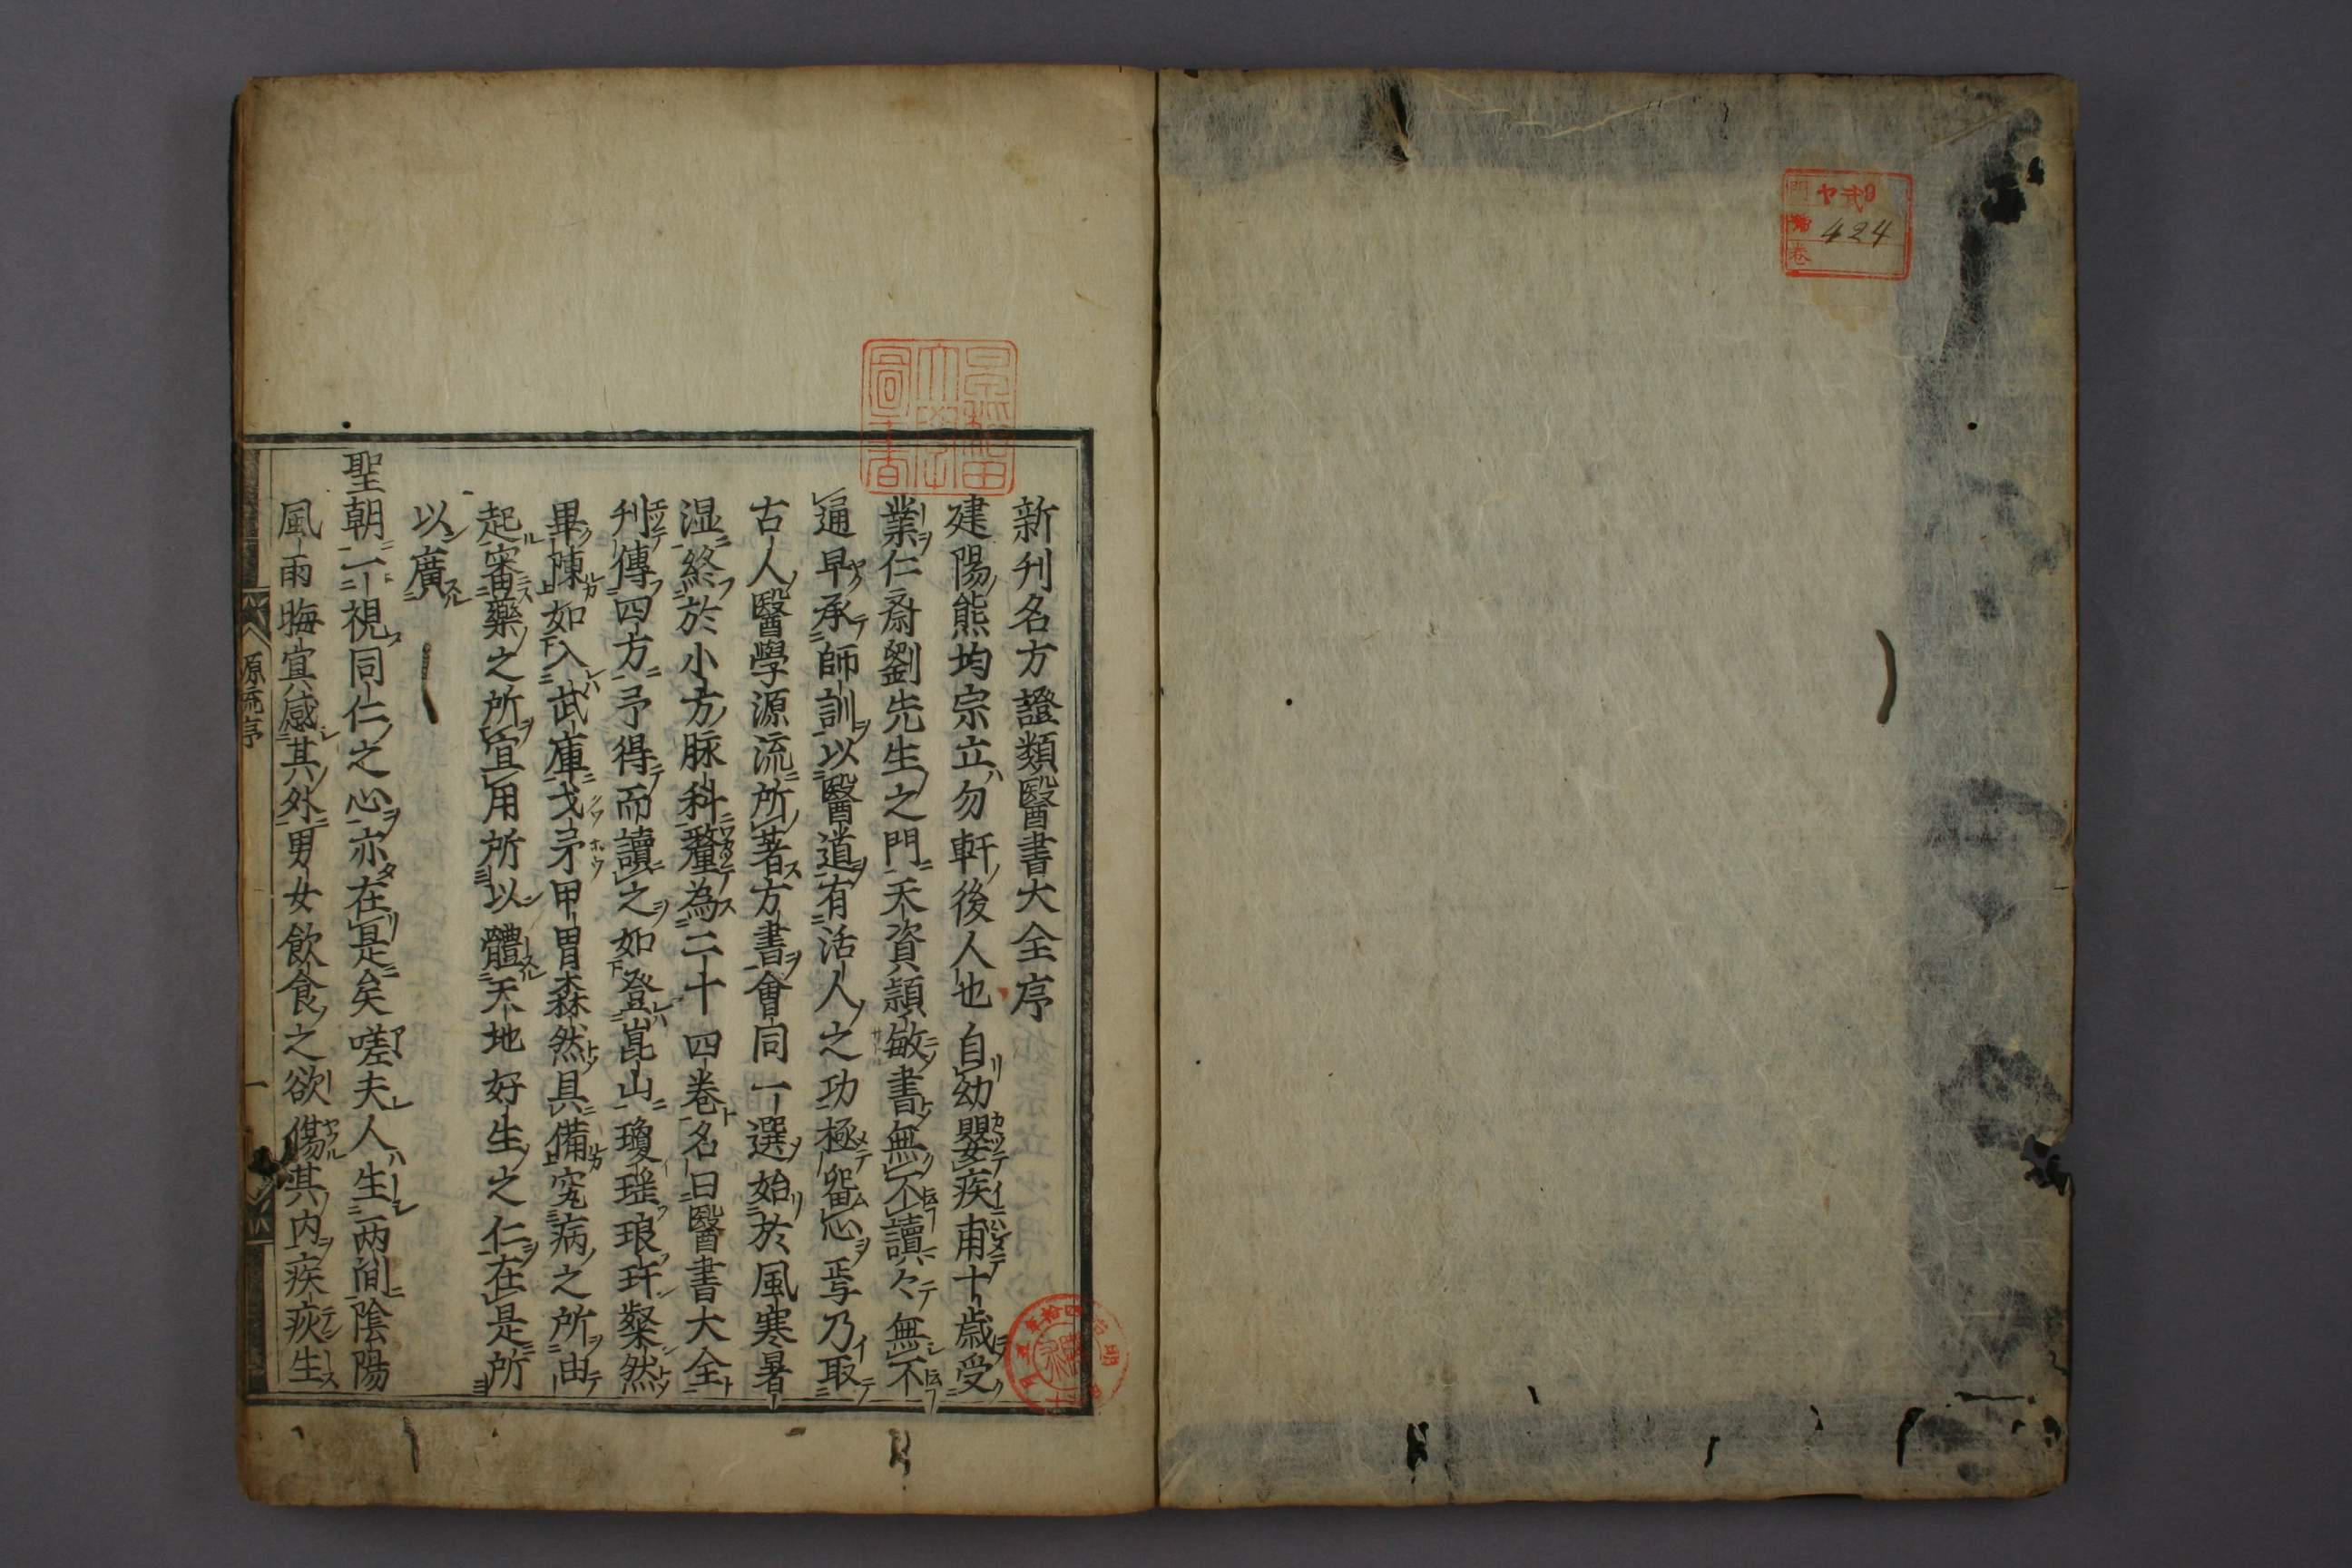 ヤ 9
424
卷
新刊名方證類醫書大全序
建陽熊均宗立勿軒後人也自幼嬰疾甫十歳受
業仁齋劉先生之門天資頴敏書無不讀々無不
通早承師訓以醫道有活人之功極留心焉乃取
古人醫學源流所著方書會同一選始於風寒暑
湿終於小方脉科釐為二十四卷名曰醫書大全
刋傳四方予得而讀之如登崑山瓊瑶琅玕粲然
畢陳如入武庫戈矛甲胄森然具備究病之所由
起審藥之所宜用所以體天地好生之仁在是所
以廣
聖朝一視同仁之心亦在是矣嗟夫人生両間陰陽
風雨晦冥感其外男女飲食之欲傷其内疾疢生
源流序
一